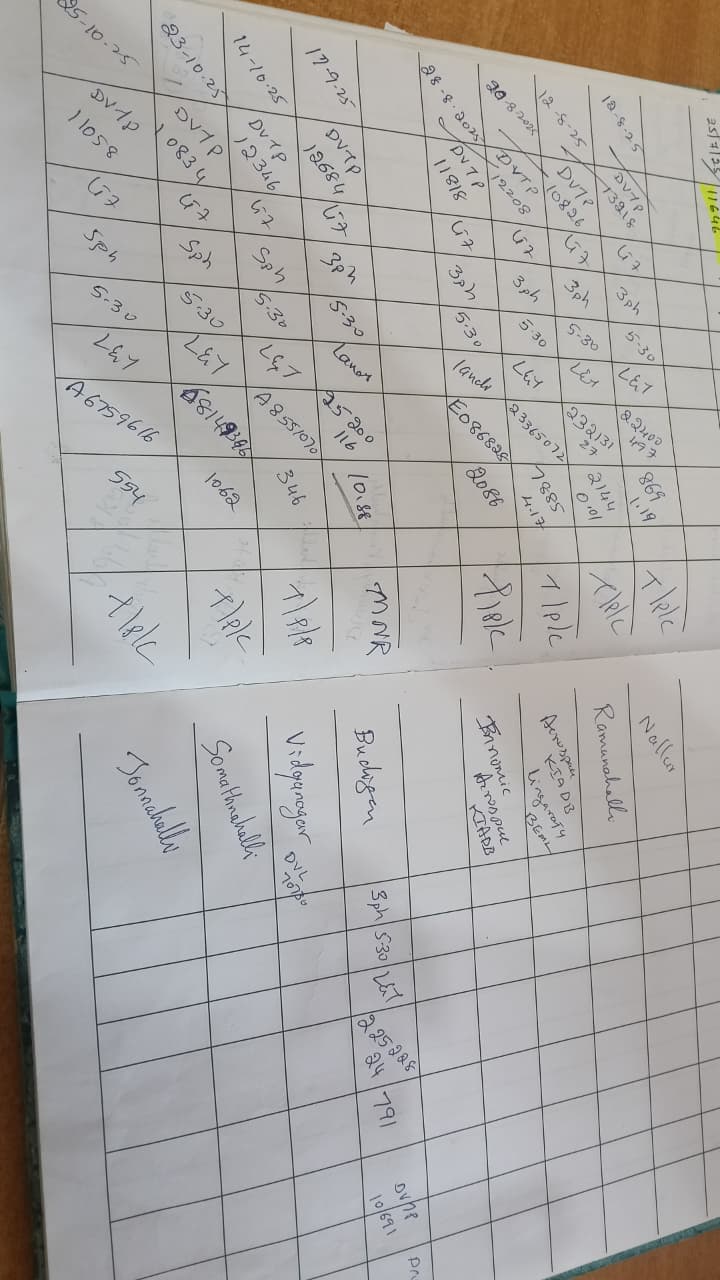 25/7/25 11646
12-8.25 DVTP 13218 LT7 3ph 5.30 L&T 22400 497 869 1.19 T/P/C Nallur
12-8-25 DVTP 10826 LT7 3ph 5.30 L&T 232131 27 2144 0.01 T/P/C Ramanahalli
20.8.2025 DVTP 12208 LT7 3ph 5.30 L&T 23365072 7885 4.17 T/P/C KIADB
28-8.2025 DVTP 11818 LT7 3ph 5.30 landi E086828 2086 T/P/C KIADB
17-9.25 DVTP 12684 LT7 3ph 5.30 Landi 25200 116 10.88 MNR Budigen 3ph 5.30 L&T 225228 24 791 DVTP 10691
14-10.25 DVTP 12346 LT7 3ph 5.30 L&T A8551070 346 T/P/P Vidyanagar DVL
23-10.25 DVTP 10834 LT7 3ph 5.30 L&T 1062 T/P/C Somathnahalli
25-10.25 DVTP 11058 LT7 3ph 5.30 L&T A6759616 554 T/P/C Jonnahalli